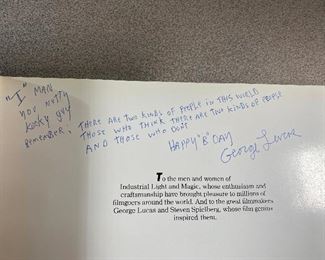 "I" MAN
YOU NUTTY
KOOKY GUY
REMEMBER.
THERE ARE TWO KINDS OF PEOPLE IN THIS WORLD
THOSE WHO THINK THERE ARE TWO KINDS OF PEOPLE
AND THOSE WHO DON'T
HAPPY "B" DAY
George
To the men and women of
Industrial Light and Magic, whose enthusiasm and
craftsmanship have brought pleasure to millions of
filmgoers around the world. And to the great filmmakers
George Lucas and Steven Spielberg, whose film genius
inspired them.